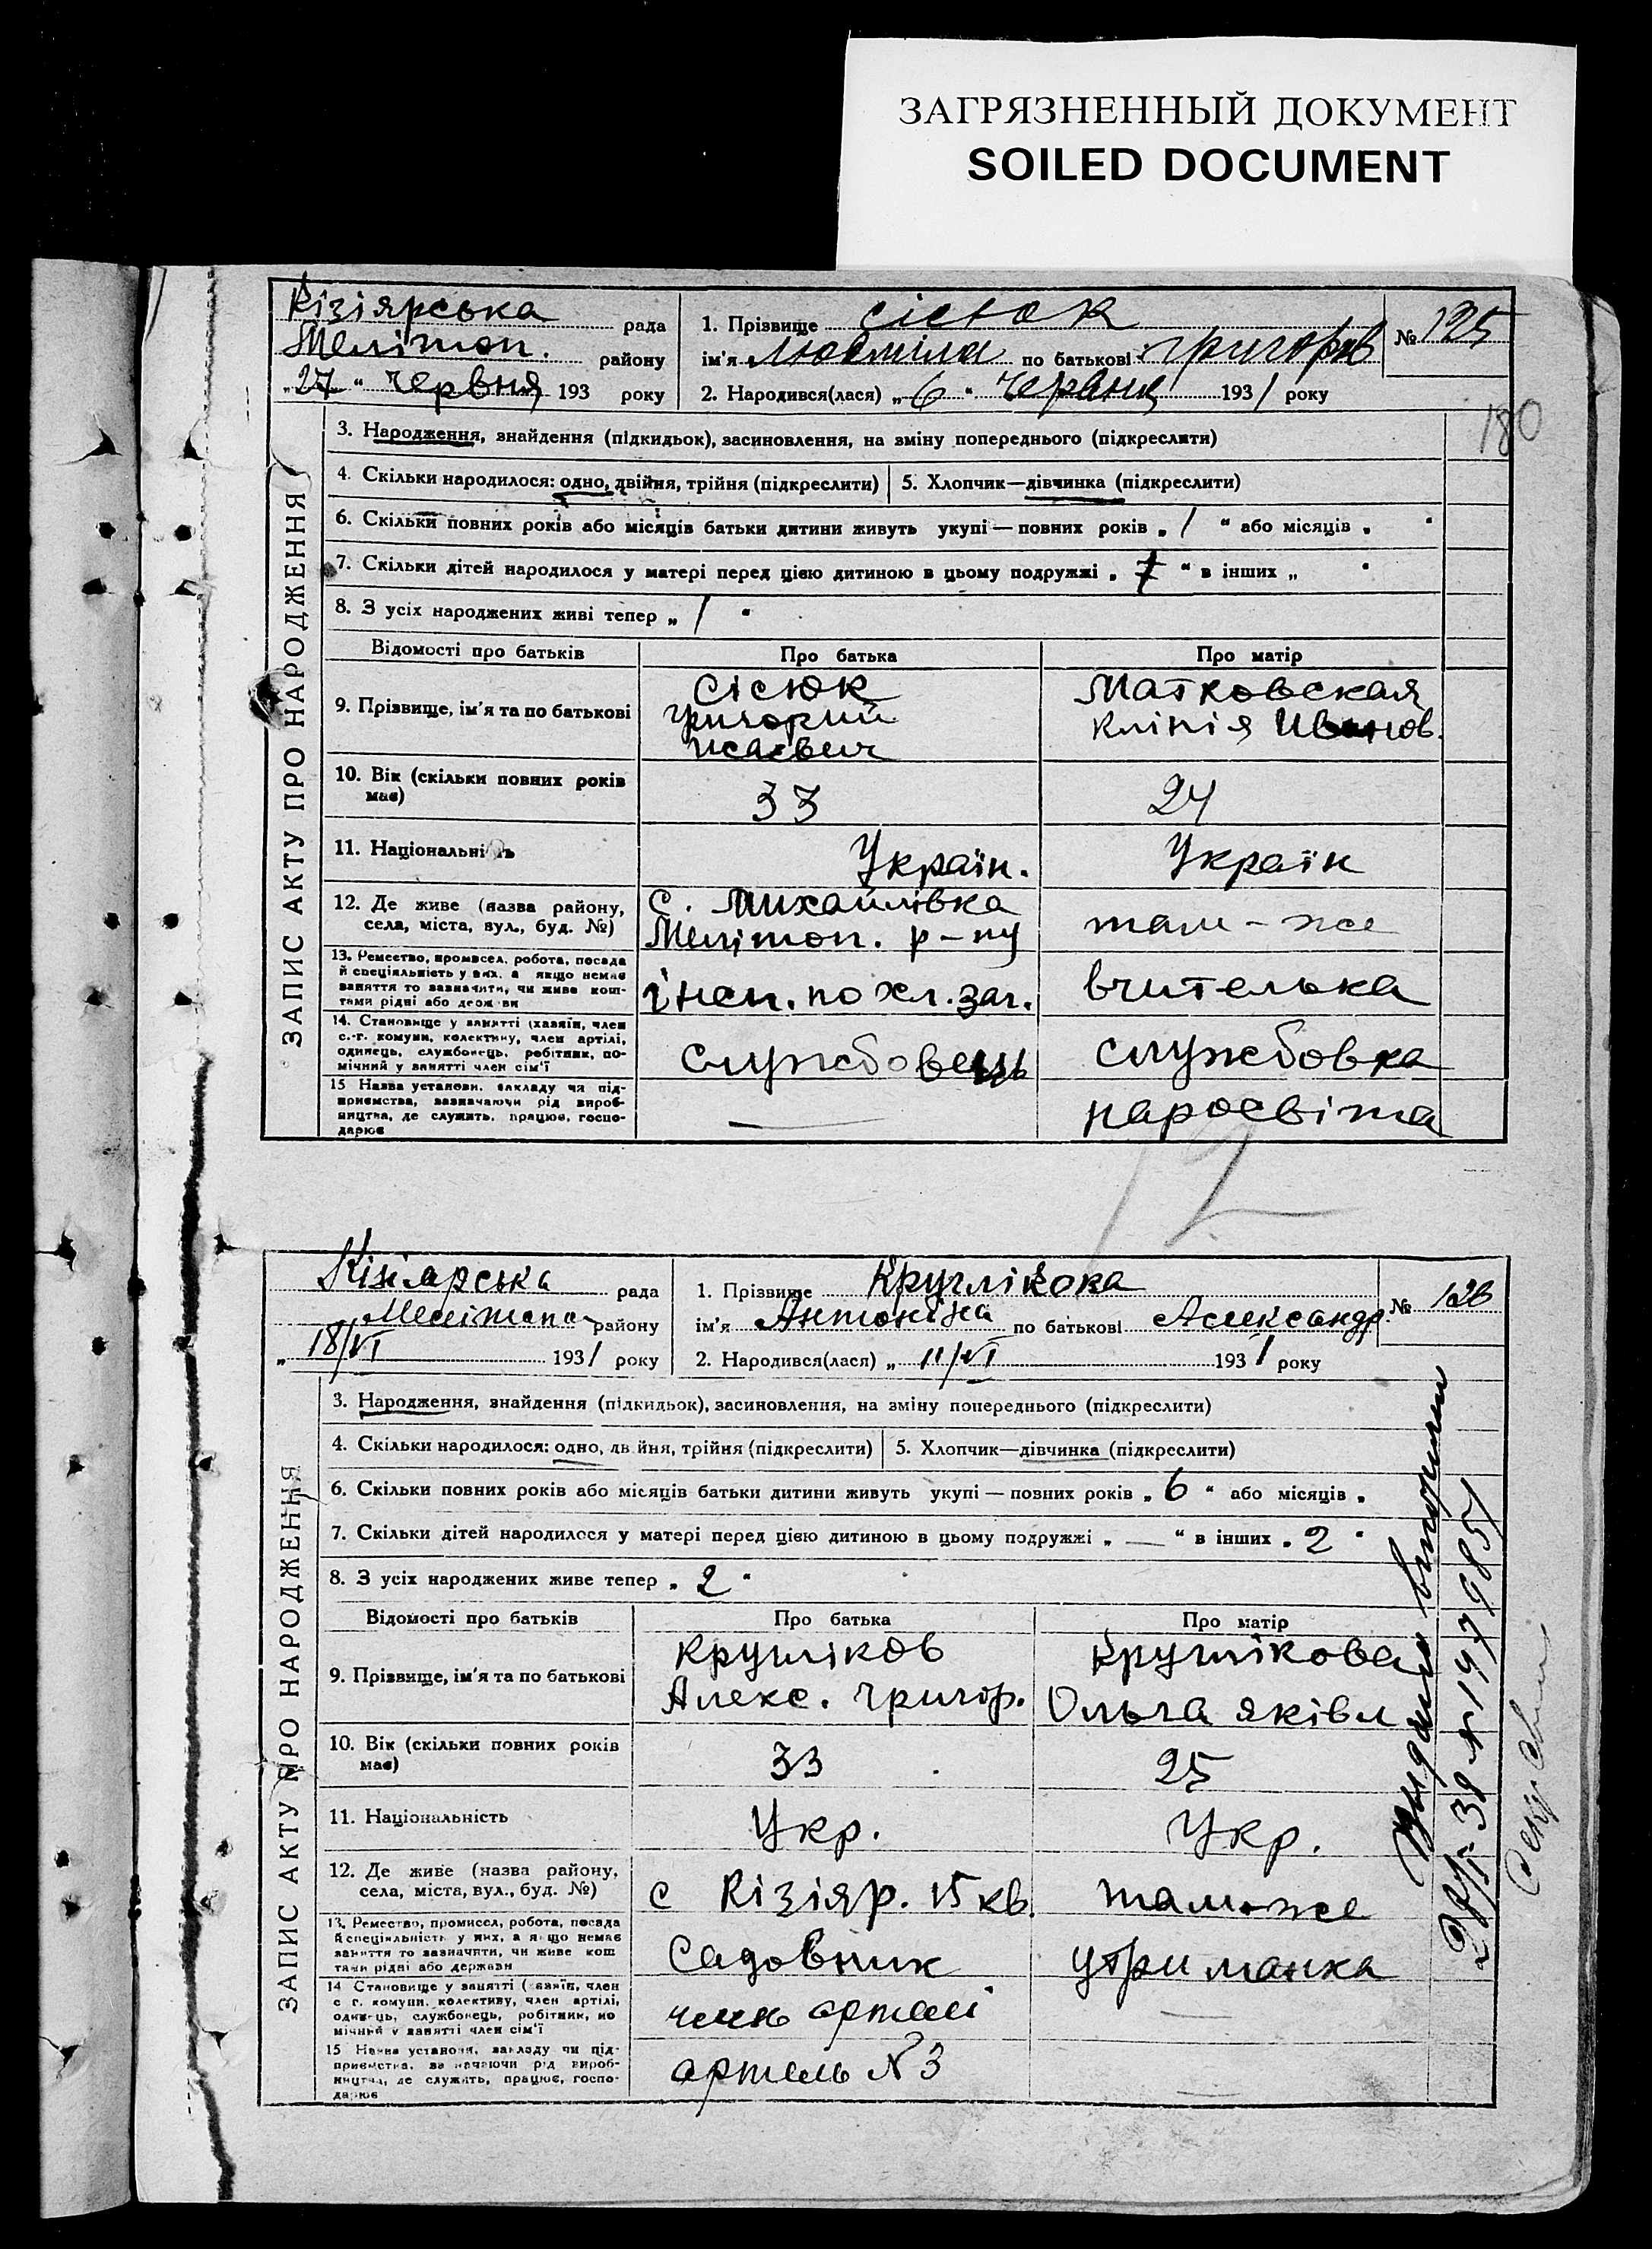 ЗАГРЯЗНЕННЫЙ ДОКУМЕНТ
SOILED DOCUMENT
Кізіярська рада
Меліт��п. району
„27“ червня 193 року
1. Прізвище Сісюк
ім'я Людміла по батькові Григорів
2. Народився(лася) „6“ Червня 1931 року
№ 125
180
ЗАПИС АКТУ ПРО НАРОДЖЕННЯ
3. Народження, знайдення (підкидьок), засиновлення, на зміну попереднього (підкреслити)
4. Скільки народилося: одно, двійня, трійня (підкреслити)
5. Хлопчик—дівчинка (підкреслити)
6. Скільки повних років або місяців батьки дитини живуть укупі — повних років „1“ або місяців „ “
7. Скільки дітей народилося у матері перед цією дитиною в цьому подружжі „ “ в інших „ “
8. З усіх народжених живі тепер „1“
Відомості про батьків
Про батька
Про матір
9. Прізвище, ім'я та по батькові
Сісюк
Григорий
Исаевич
Матковская
Клінія Иванов.
10. Вік (скільки повних років
має)
33
24
11. Національність
Україн.
Україн
12. Де живе (назва району,
села, міста, вул., буд. №)
с. Михайлівка
Мелітоп. р-ну
там-же
13. Ремество, промисел, робота, посада
й спеціяльність у них, а якщо немає
заняття то зазначити, чи живе кош-
тами рідні або держави
інсп. по хл. заг.
вчителька
14. Становище у занятті (хазяїн, член
с.-г. комуни, колективу, член артілі,
одинець, службовець, робітник, по-
мічний у занятті член сім'ї
службовець
службовка
15 Назва установи, закладу чи під-
приємства, зазначаючи рід вироб-
ництва, де служить, працює, госпо-
дарює
—
наросвіта
12
Кізіярська рада
Мелітопол району
„18/VI 1931 року
1. Прізвище Круглікова
ім'я Антоніна по батькові Александр.
2. Народився(лася) „11/VI 1931 року
№ 126
ЗАПИС АКТУ ПРО НАРОДЖЕННЯ
3. Народження, знайдення (підкидьок), засиновлення, на зміну попереднього (підкреслити)
4. Скільки народилося: одно, двійня, трійня (підкреслити)
5. Хлопчик—дівчинка (підкреслити)
6. Скільки повних років або місяців батьки дитини живуть укупі — повних років „6“ або місяців „
7. Скільки дітей народилося у матері перед цією дитиною в цьому подружжі „—“ в інших „2“
8. З усіх народжених живе тепер „2“
Відомості про батьків
Про батька
Про матір
9. Прізвище, ім'я та по батькові
Кругліков
Алекс. Григор.
Круглікова
Ольга Яківл
10. Вік (скільки повних років
має)
33
25
11. Національність
Укр.
Укр.
12. Де живе (назва району,
села, міста, вул., буд. №)
с Кізіяр. 15 кв.
там-же
13. Ремество, промисел, робота, посада
й спеціяльність у них, а якщо немає
заняття то зазначити, чи живе кош
тами рідні або держави
Садовник
утриманка
14 Становище у занятті (хазяїн, член
с г. комуни, колективу, член артілі,
одинець, службовець, робітник, по
мічний у занятті член сім'ї
член артелі
—
15 Назва установи, закладу чи під-
приємства, зазначаючи рід вироб-
ництва, де служить, працює, госпо-
дарює
артель N 3
—
Видали вторичн